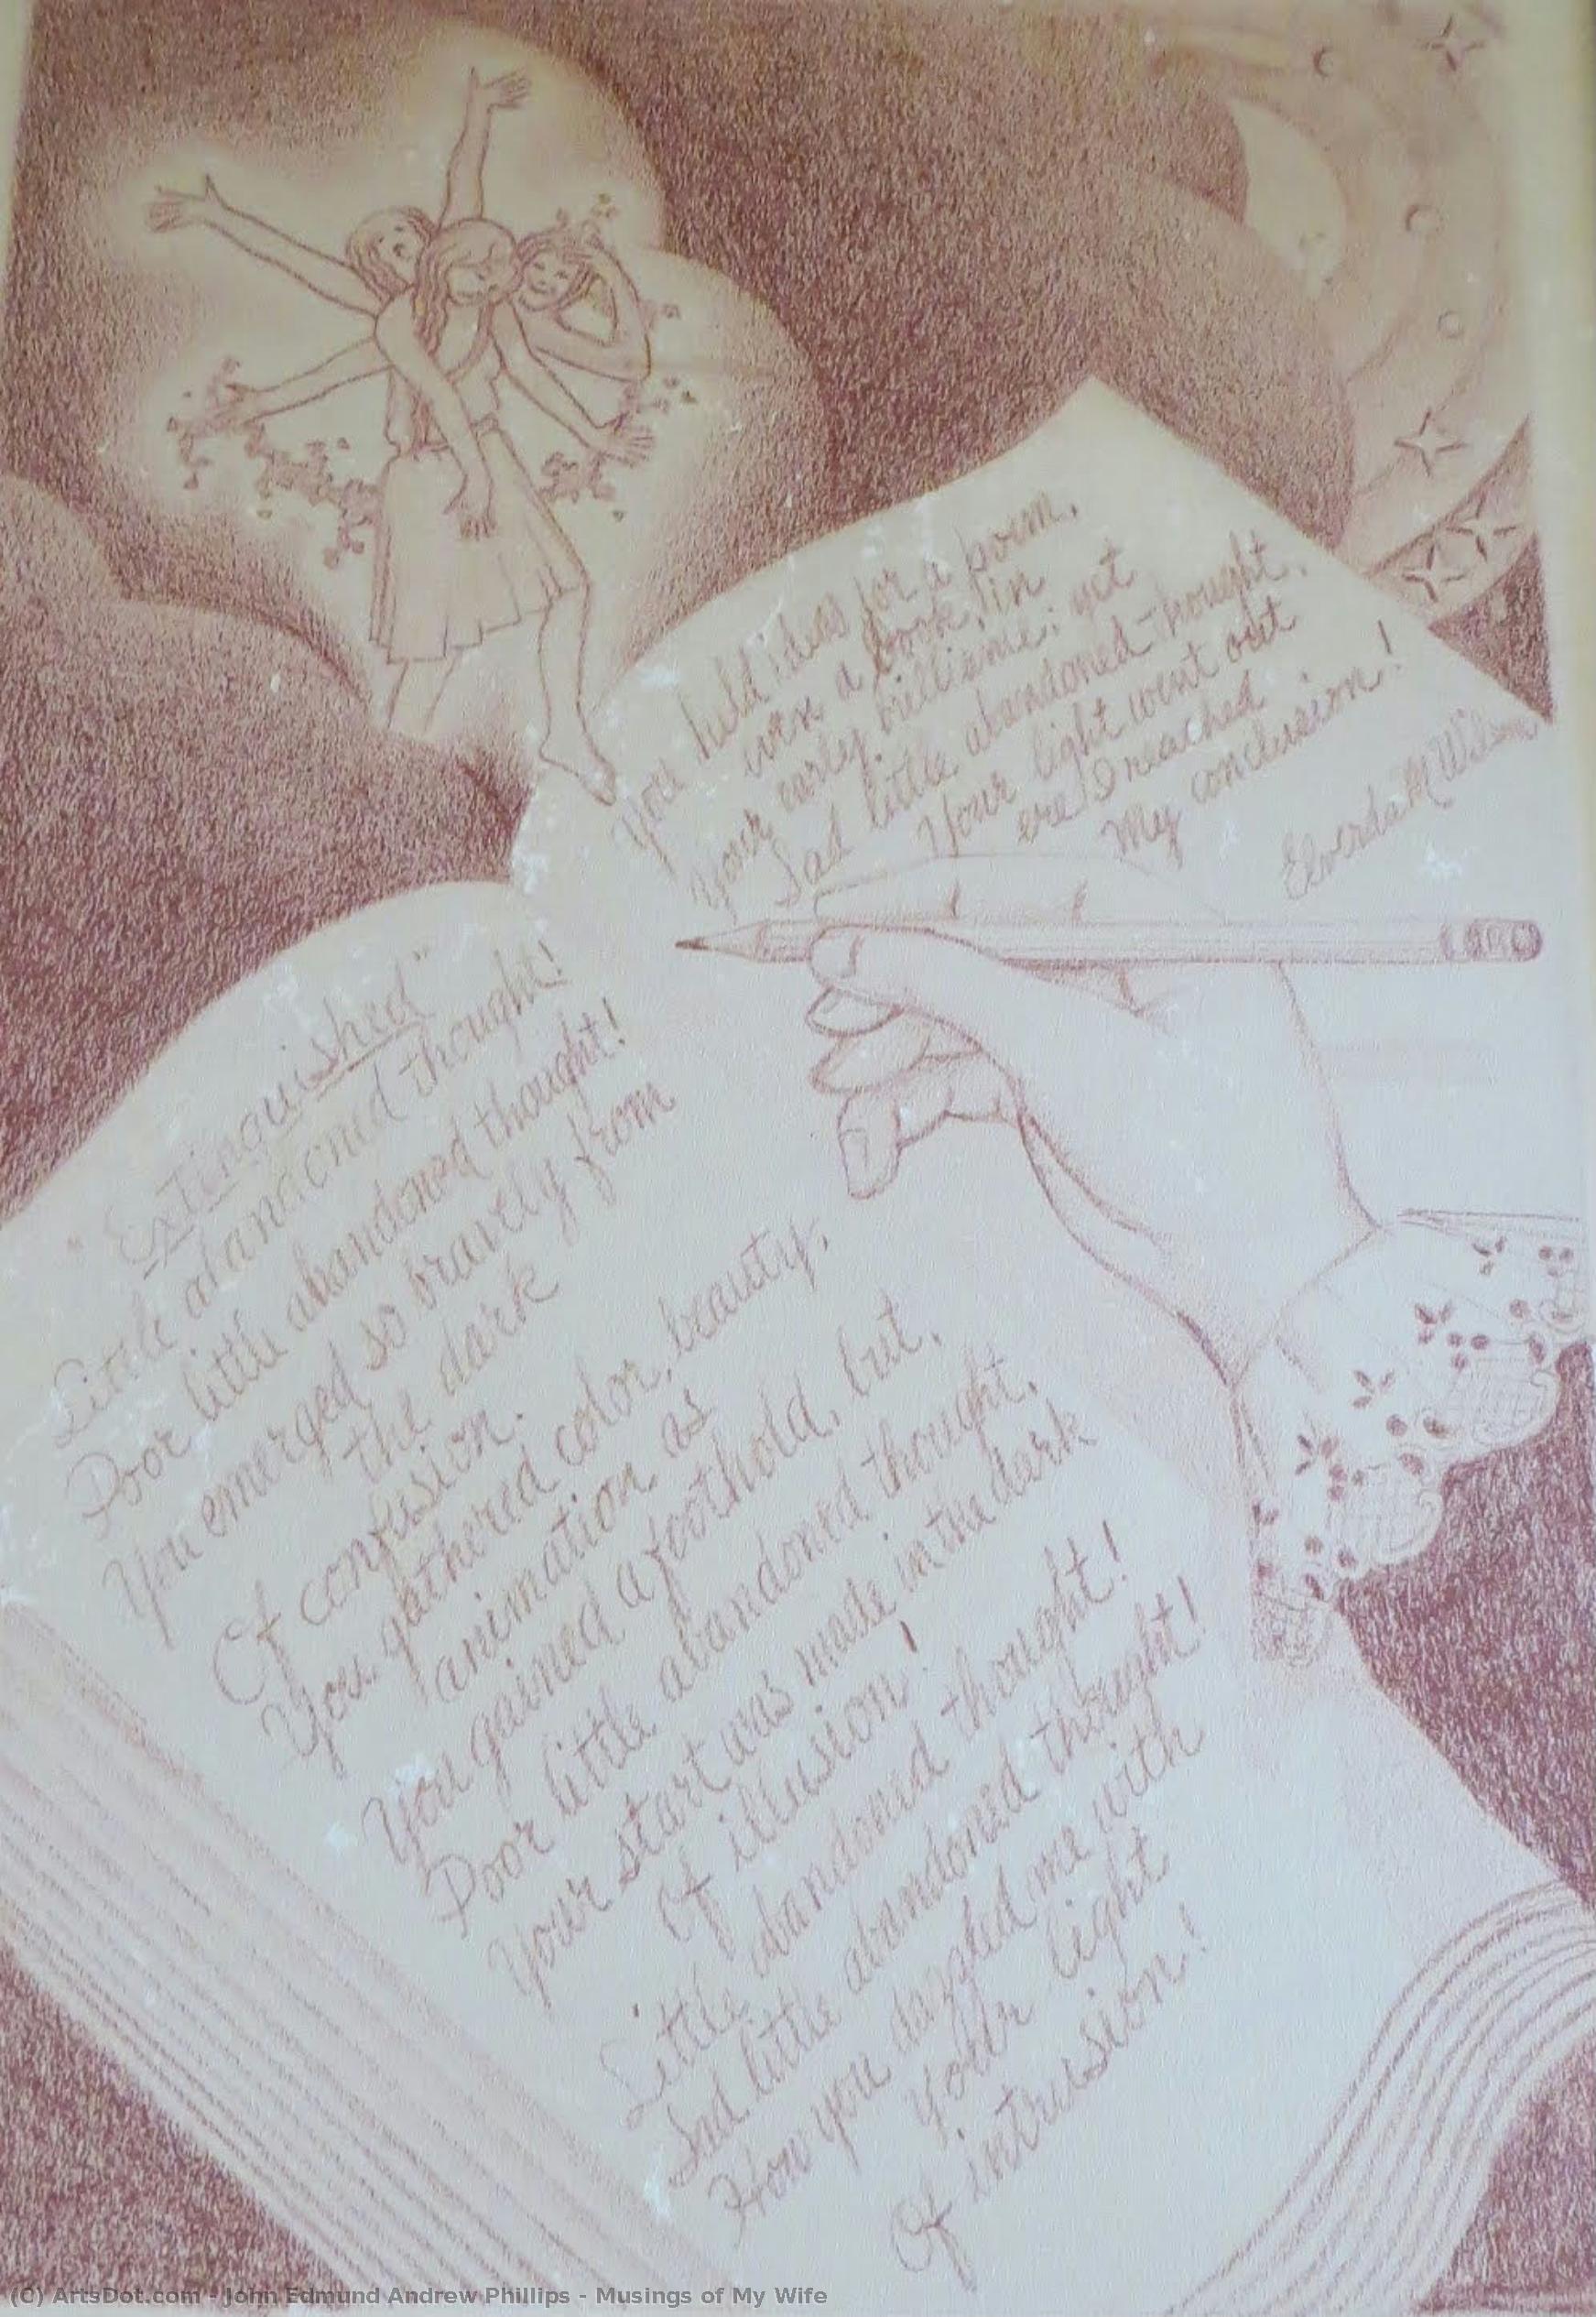 "Extinguished"
Little abandoned thought!
Poor little abandoned thought!
You emerged so bravely from
the dark
Of confusion.
You gathered color, beauty,
animation as
You gained a foothold, but,
Poor little abandoned thought,
Your start was made in the dark
Of illusion!
Little abandoned thought!
Sad little abandoned thought!
How you dazzled me with
Your light
Of intrusion!
You held ideas for a poem,
even a book, in
Your early brilliance; yet
Sad little abandoned thought,
Your light went out
ere I reached
My conclusion!
Elverda M Wilson
(C) ArtsDot.com - John Edmund Andrew Phillips - Musings of My Wife